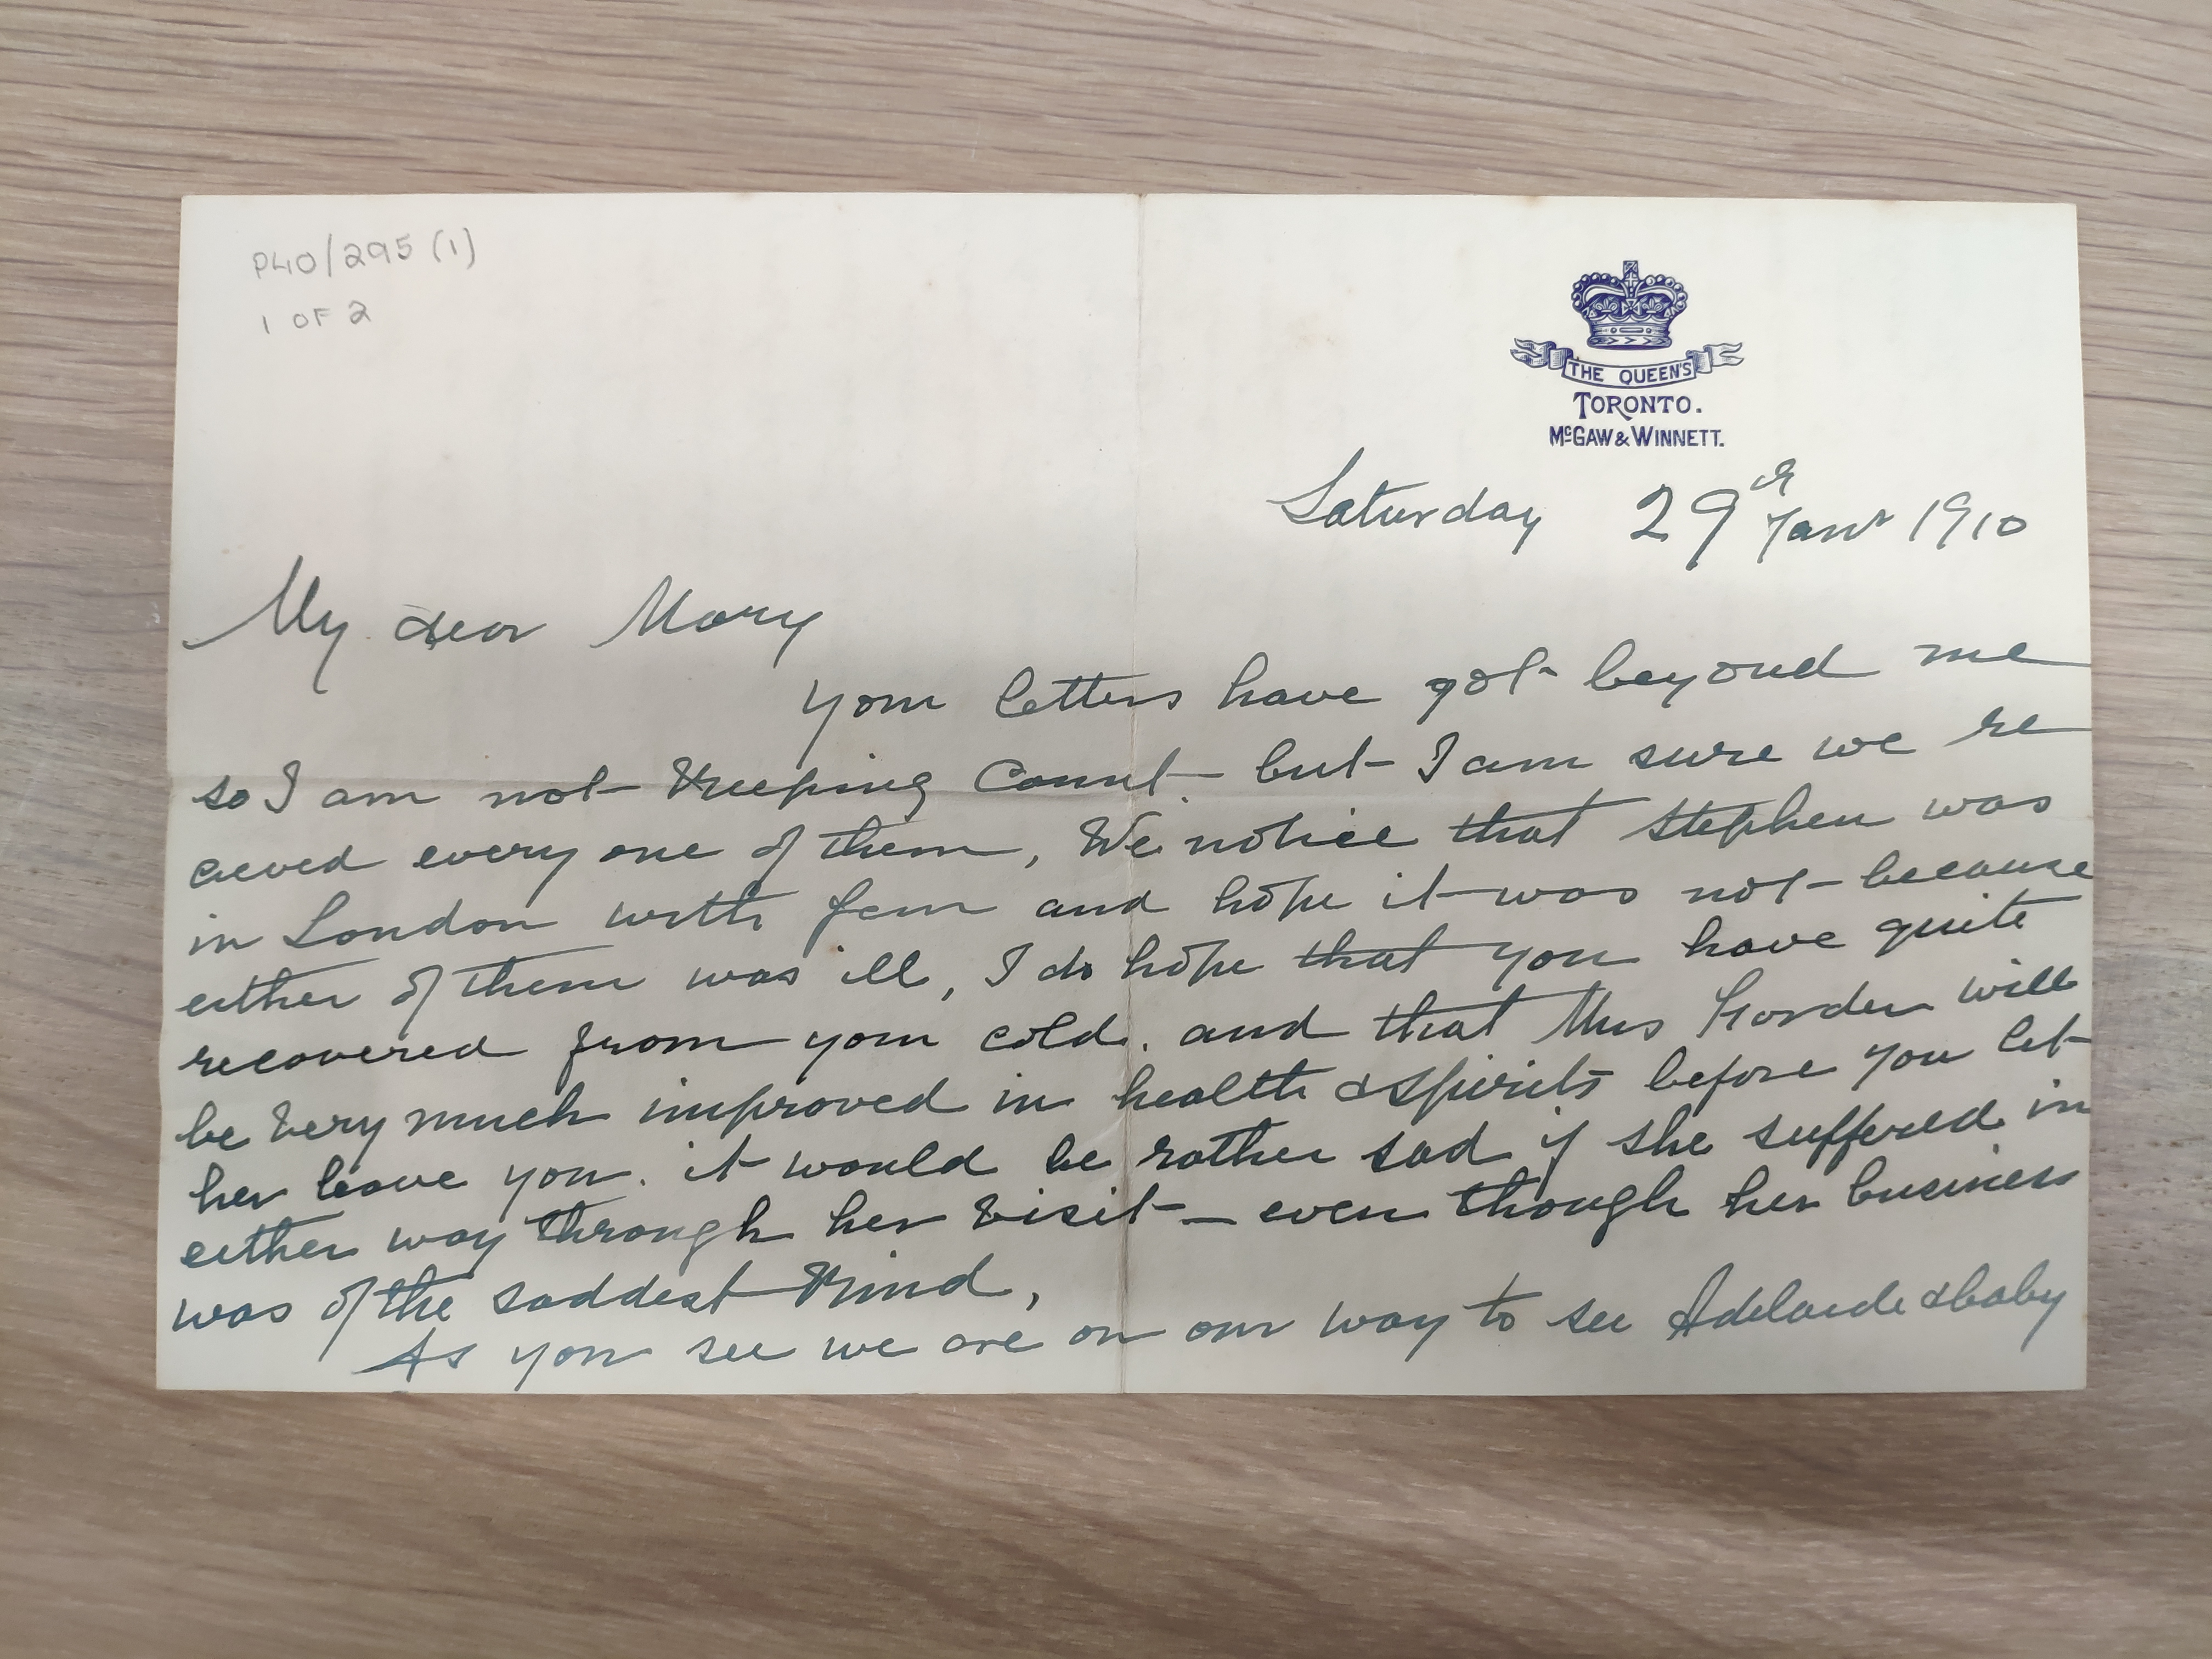 P40/295 (1)
1 OF 2
THE QUEEN'S
TORONTO.
McGAW & WINNETT.
Saturday 29th Janr 1910
My dear Mary
your letters have got beyond me
so I am not keeping count but I am sure we re
cieved every one of them, We notice that Stephen was
in London with Jem and hope it was not because
either of them was ill, I do hope that you have quite
recovered from your cold. and that Mrs will
be very much improved in health & spirits before you let
her leave you. it would be rather sad if she suffered in
either way through her visit - even though her business
was of the saddest kind,
As you see we are on our way to see Adelaide & baby